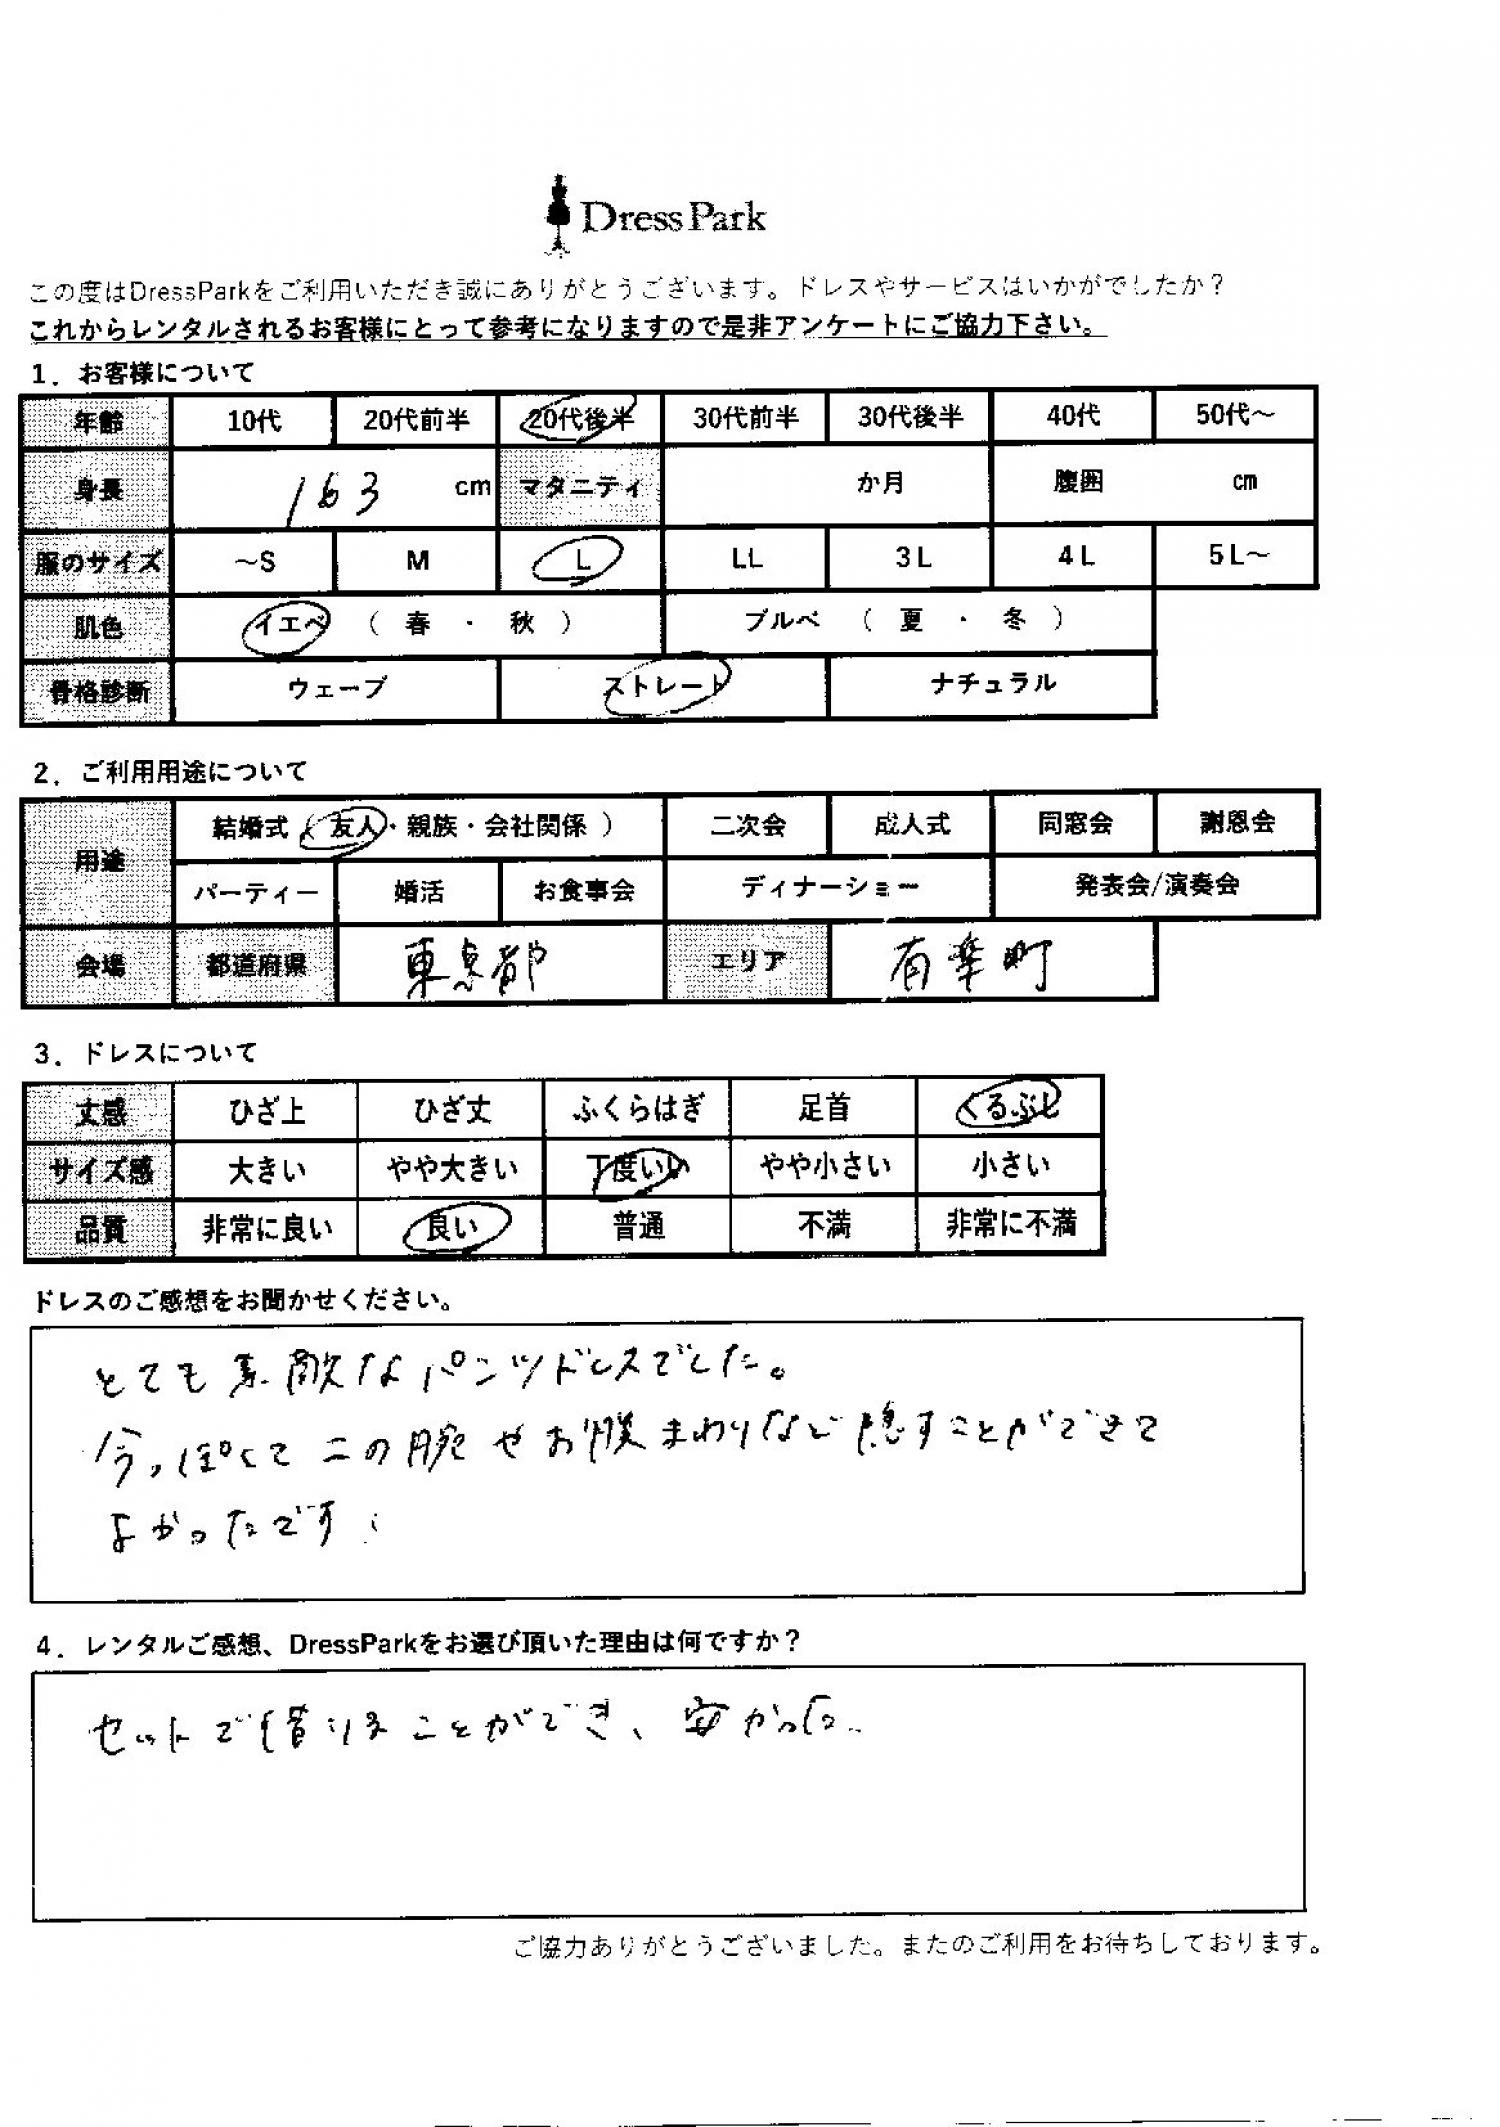 Dress Park
この度はDressParkをご利用いただき誠にありがとうございます。ドレスやサービスはいかがでしたか？
これからレンタルされるお客様にとって参考になりますので是非アンケートにご協力下さい。
1．お客様について
年齢 10代 20代前半 20代後半 30代前半 30代後半 40代 50代～
身長 163 cm マタニティ か月 腹囲 cm
服のサイズ ～S M L LL 3L 4L 5L～
肌色 イエベ （ 春 ・ 秋 ） ブルベ （ 夏 ・ 冬 ）
骨格診断 ウェーブ ストレート ナチュラル
2．ご利用用途について
用途 結婚式（友人・親族・会社関係） 二次会 成人式 同窓会 謝恩会
パーティー 婚活 お食事会 ディナーショー 発表会/演奏会
会場 都道府県 東京都 エリア 有楽町
3．ドレスについて
丈感 ひざ上 ひざ丈 ふくらはぎ 足首 くるぶし
サイズ感 大きい やや大きい 丁度いい やや小さい 小さい
品質 非常に良い 良い 普通 不満 非常に不満
ドレスのご感想をお聞かせください。
とても素敵なパンツドレスでした。
今っぽくて二の腕やお腹まわりなど隠すことができて
よかったです
4．レンタルご感想、DressParkをお選び頂いた理由は何ですか？
セットで借りることができ、安かった。
ご協力ありがとうございました。またのご利用をお待ちしております。